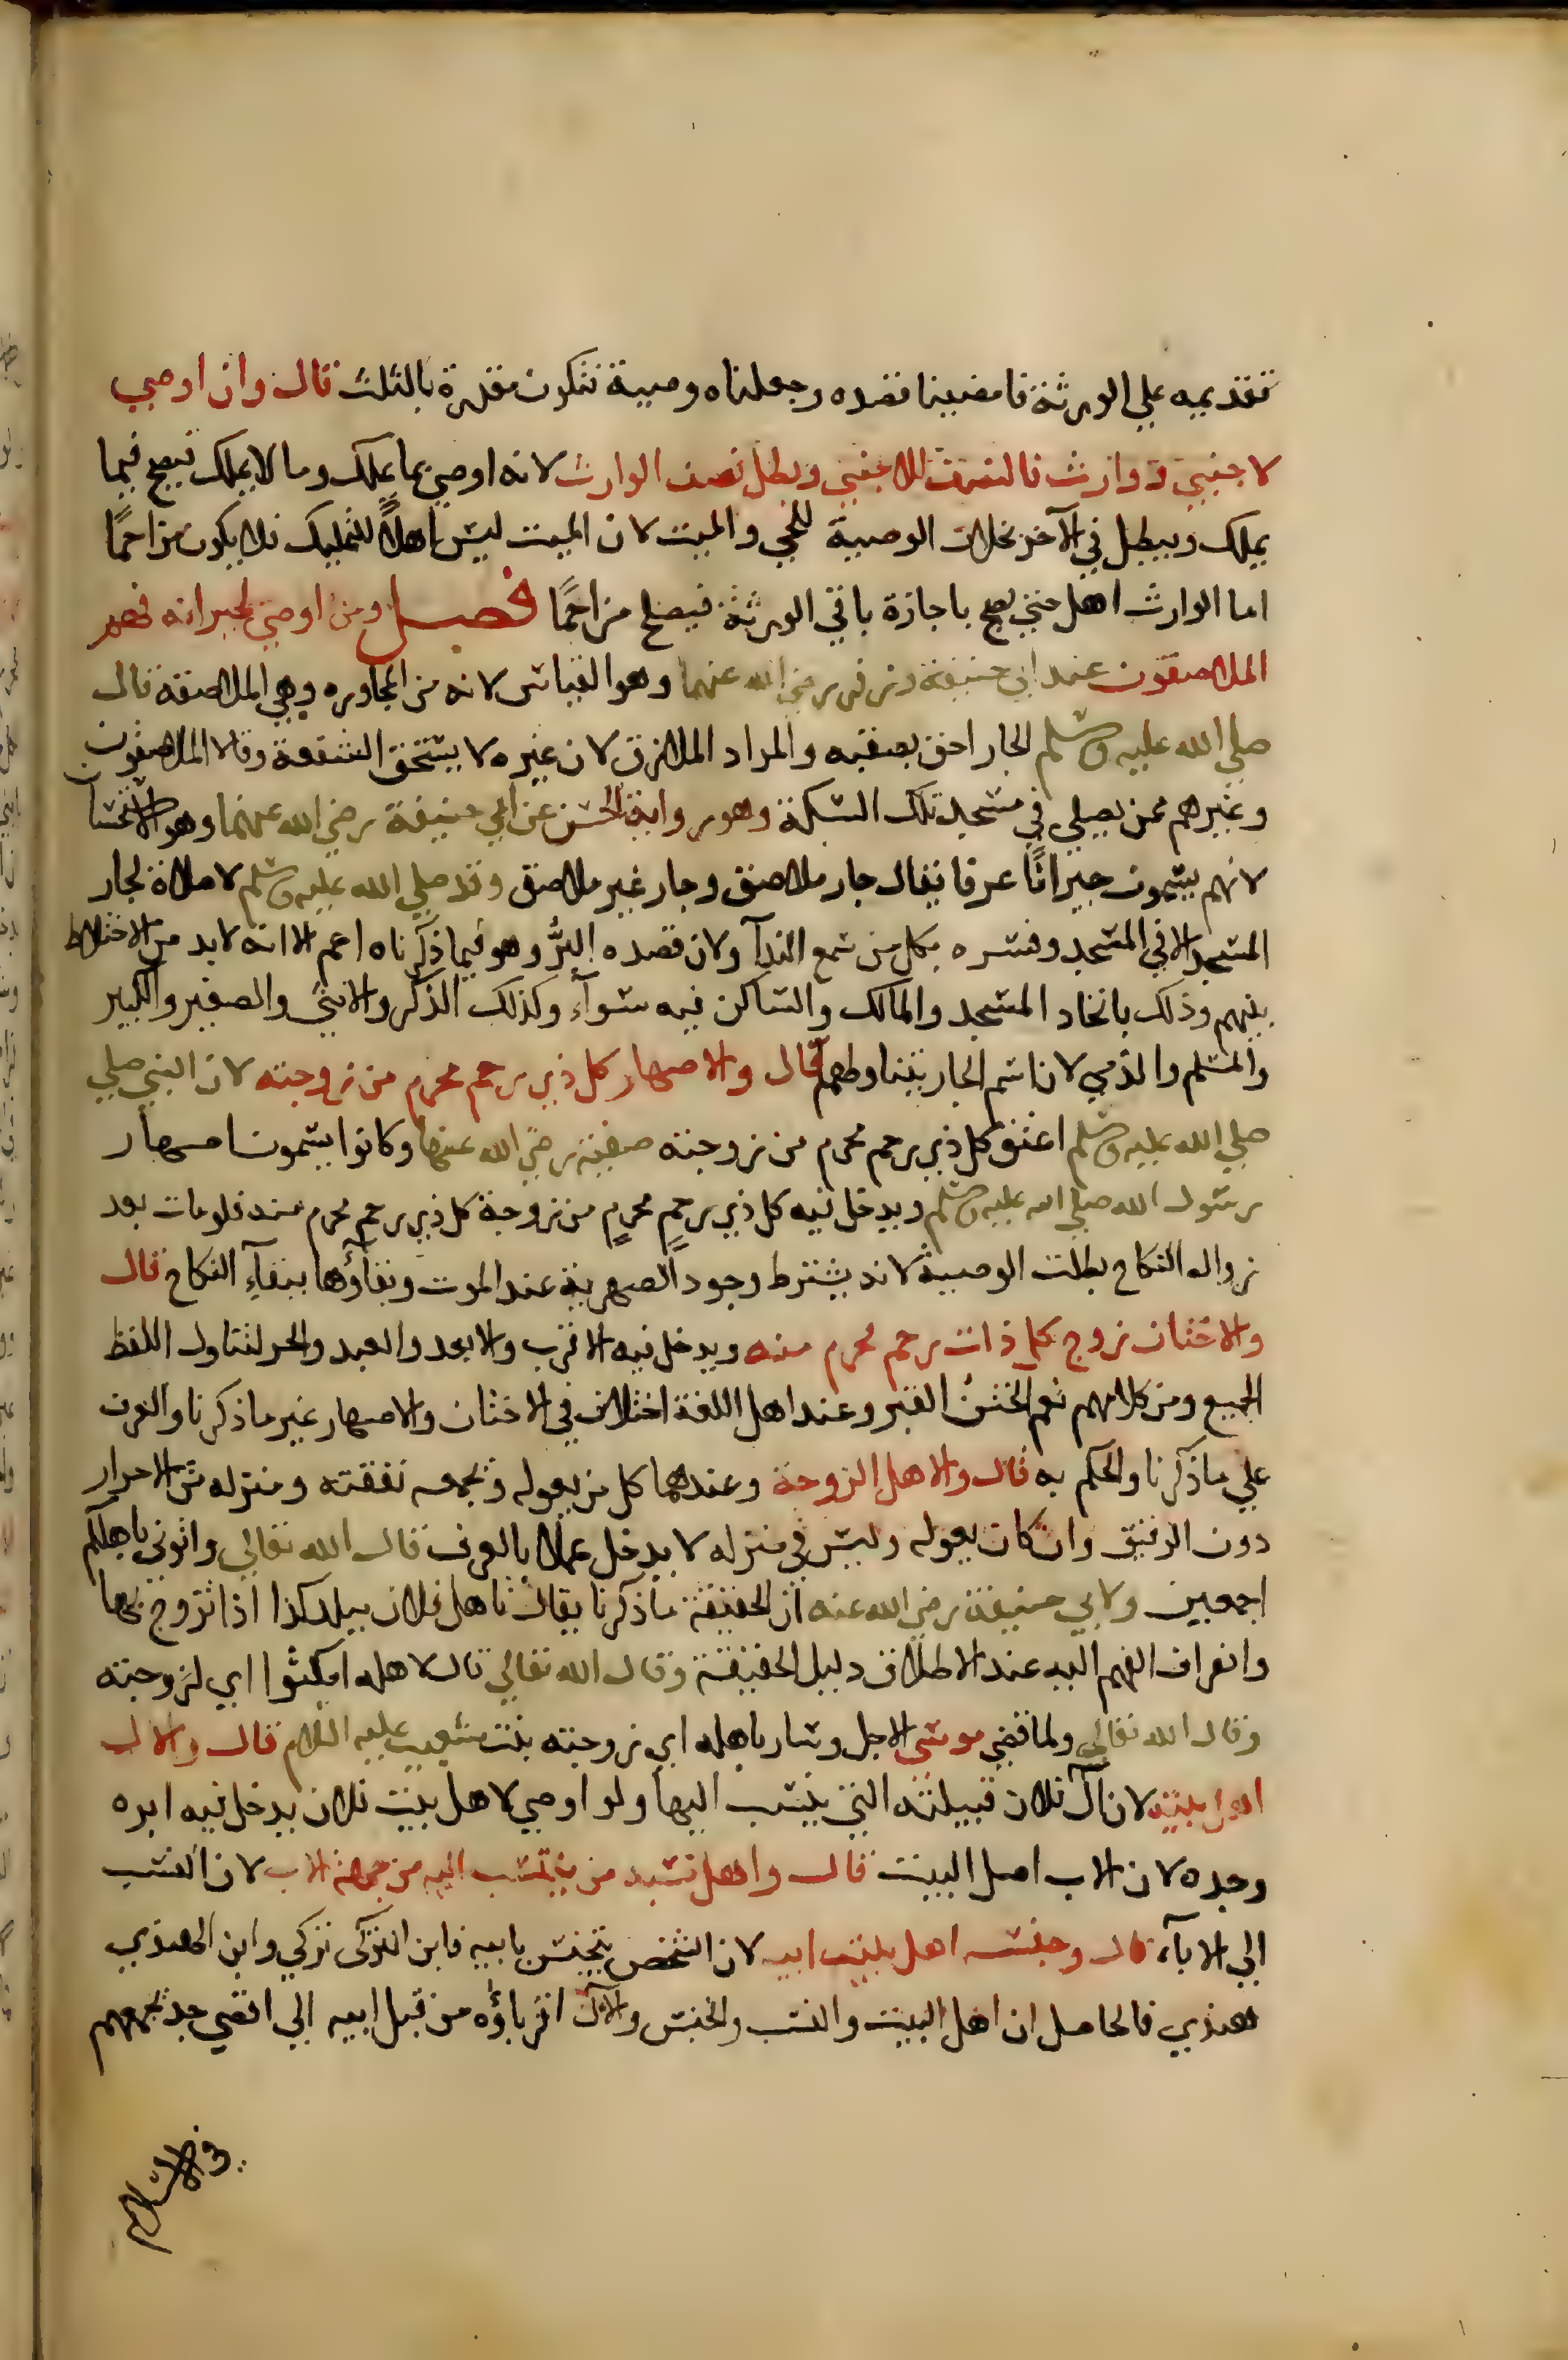 تقديمه علي الورثة فامضينا قصده وجعلناه وصية فتكون مقدرة بالثلث قال وان اوصي
لاجنبي ووارث فالنصف للاجنبي وبطل نصف الوارث لانه اوصي بما يملك وما لا يملك فيصح فيما
يملك ويبطل في الآخر بخلاف الوصية للحي والميت لان الميت ليس اهلًا للتمليك فلا يكون مزاحمًا
اما الوارث اهل حتي يصح باجازة باقي الورثة فيصلح مزاحمًا فصل ومن اوصي لجيرانه فهم
الملاصقون عند ابي حنيفة وزفر رضي الله عنهما وهو القياس لانه من المجاوره وهي الملاصقة قال
صلي الله عليه وسلم الجار احق بصقبه والمراد الملازق لان غيره لا يستحق الشفعة وقالا الملاصقون
وغيرهم ممن يصلي في مسجد تلك السكة وهو رواية الحسن عن ابي حنيفة رضي الله عنهما وهو الاستحسان
لانهم يسمون جيرانًا عرفا يقال جار ملاصق وجار غير ملاصق وقد صلي الله عليه وسلم لا صلاة لجار
المسجد الا في المسجد وفسره بكل من سمع الندآ ولان قصده البرُّ وهو فيما ذكرناه اعم الا انه لا بد من الاختلاط
بينهم وذلك باتخاد المسجد والمالك والساكن فيه سوآء وكذلك الذكر والانثي والصغير والكبير
والمسلم والذمي لان اسم الجار يتناولهم قال والاصهار كل ذي رحم محرم من زوجته لان النبي صلي
صلي الله عليه وسلم اعتق كل ذي رحم محرم من زوجته صفية رضي الله عنها وكانوا يسمون اصهار
رسول الله صلي الله عليه وسلم ويدخل فيه كل ذي رحمٍ محرمٍ من زوجة كل ذي رحم محرم منه فلو مات بعد
زوال النكاح بطلت الوصية لانه يشترط وجود الصهرية عند الموت وبقاؤها ببقآء النكاح قال
والاختان زوج كل ذات رحم محرم منه ويدخل فيه الاقرب والابعد والعبد والحر لتناول اللفظ
الجميع ومن كلامهم نعم الختنُ القبر وعند اهل اللغة اختلاف في الاختان والاصهار غير ما ذكرنا والعرف
علي ما ذكرنا والحكم به قال والاهل الزوجة وعندهما كل من يعوله وتجمعه نفقته ومنزله من الاحرار
دون الرقيق وان كان يعوله وليس في منزله لا يدخل عملا بالعرف قال الله تعالي واتوني باهلكم
اجمعين ولابي حنيفة رضي الله عنه ان الحقيقة ما ذكرنا يقال تاهل فلان ببلد كذا اذا تزوج بها
وانصراف الفهم اليه عند الاطلاق دليل الحقيقة وقال الله تعالي قال لاهله امكثوا اي لزوجته
وقال الله تعالي ولما قضي موسي الاجل وسار باهله اي زوجته بنت شعيب عليه السلام قال والال
اهل بيته لان آل فلان قبيلته التي ينتسب اليها ولو اوصي لاهل بيت فلان يدخل فيه ابوه
وجده لان الاب اصل البيت قال واهل نسبه من ينتسب اليه من جهة الاب لان النسب
الي الابآء قال وجنسه اهل بيت ابيه لان الشخص يتجنس بابيه فابن التركي تركي وابن الهندي
هندي فالحاصل ان اهل البيت والنسب والجنس والآل اقرباؤه من قبل ابيه الي اقصي جد يجمعهم
في الاسلام